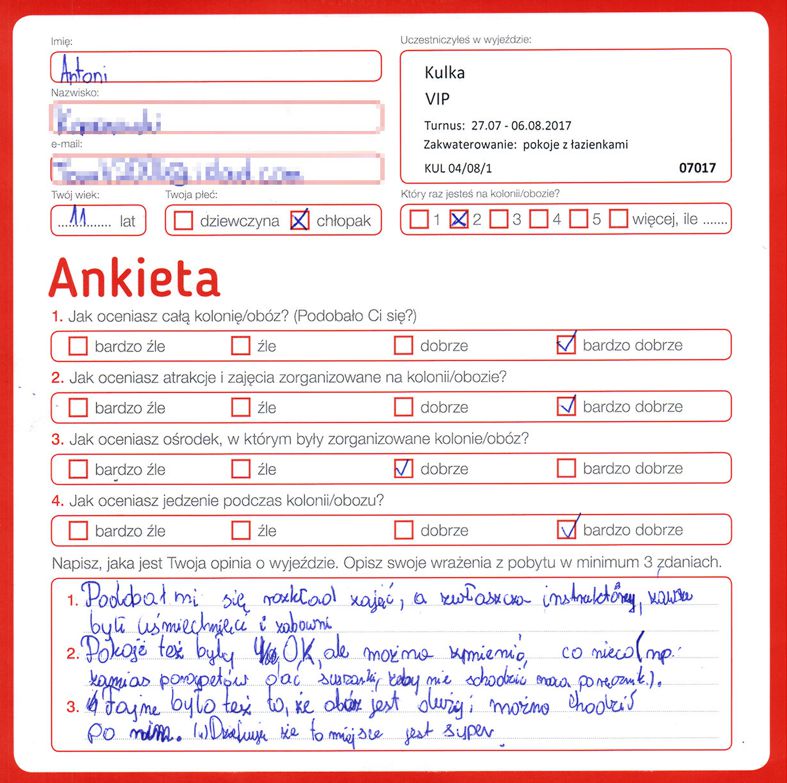 Imię:
Antoni
Nazwisko:
e-mail:
Twój wiek:
11 lat
Twoja płeć:
dziewczyna chłopak
Uczestniczyłeś w wyjeździe:
Kulka
VIP
Turnus: 27.07 - 06.08.2017
Zakwaterowanie: pokoje z łazienkami
KUL 04/08/1 07017
Który raz jesteś na kolonii/obozie?
1 2 3 4 5 więcej, ile .......
Ankieta
1. Jak oceniasz całą kolonię/obóz? (Podobało Ci się?)
bardzo źle źle dobrze bardzo dobrze
2. Jak oceniasz atrakcje i zajęcia zorganizowane na kolonii/obozie?
bardzo źle źle dobrze bardzo dobrze
3. Jak oceniasz ośrodek, w którym były zorganizowane kolonie/obóz?
bardzo źle źle dobrze bardzo dobrze
4. Jak oceniasz jedzenie podczas kolonii/obozu?
bardzo źle źle dobrze bardzo dobrze
Napisz, jaka jest Twoja opinia o wyjeździe. Opisz swoje wrażenia z pobytu w minimum 3 zdaniach.
1. Podobał mi się rozkład zajęć, a zwłaszcza instruktörzy, zawsze
byli uśmiechnięci i zabawni
2. Pokoje też były OK, ale można zmienić, co nieco (np.
zamias parapetów dać suszarki, żeby nie schodzić na poręcznik.).
3. Fajne było też to, że obóz jest duży i można chodzić
po nim. (.) że to miejsce jest super